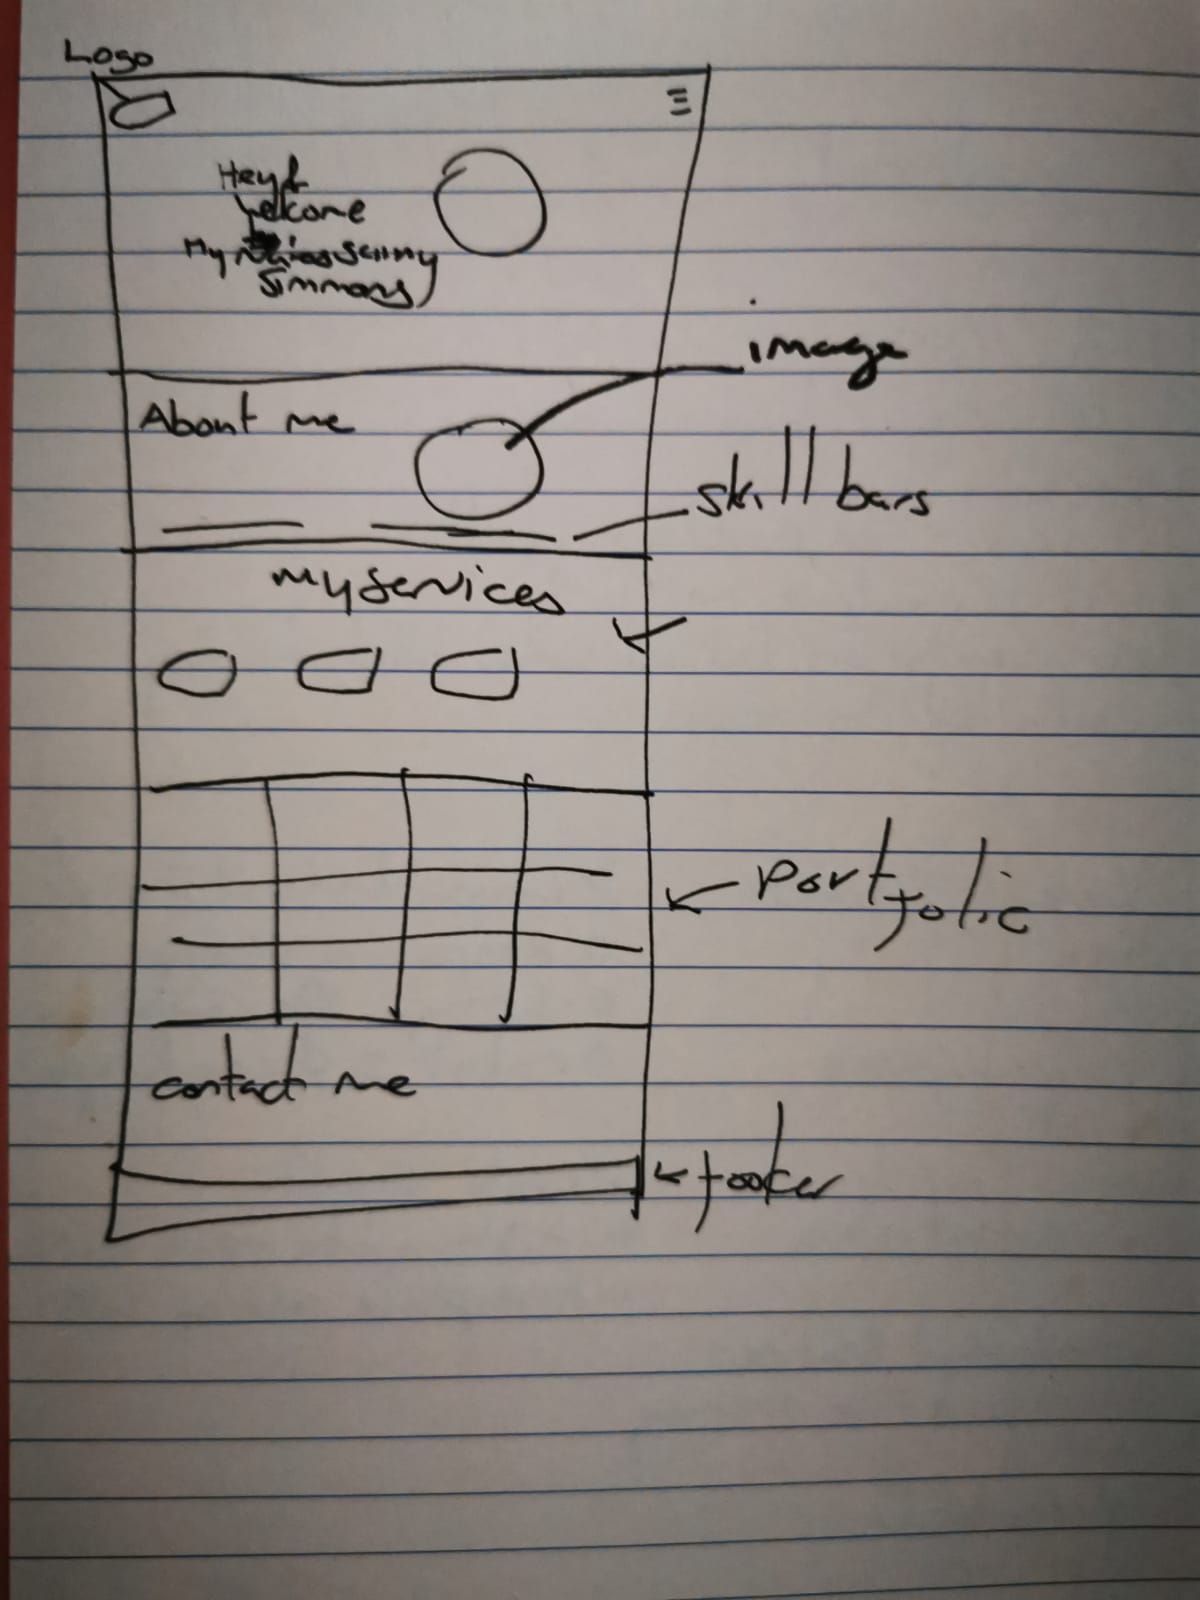 Logo
Hey &
welcome
My Sunny
Simmons
image
About me
skill bars
my services
Portfolio
contact me
footer